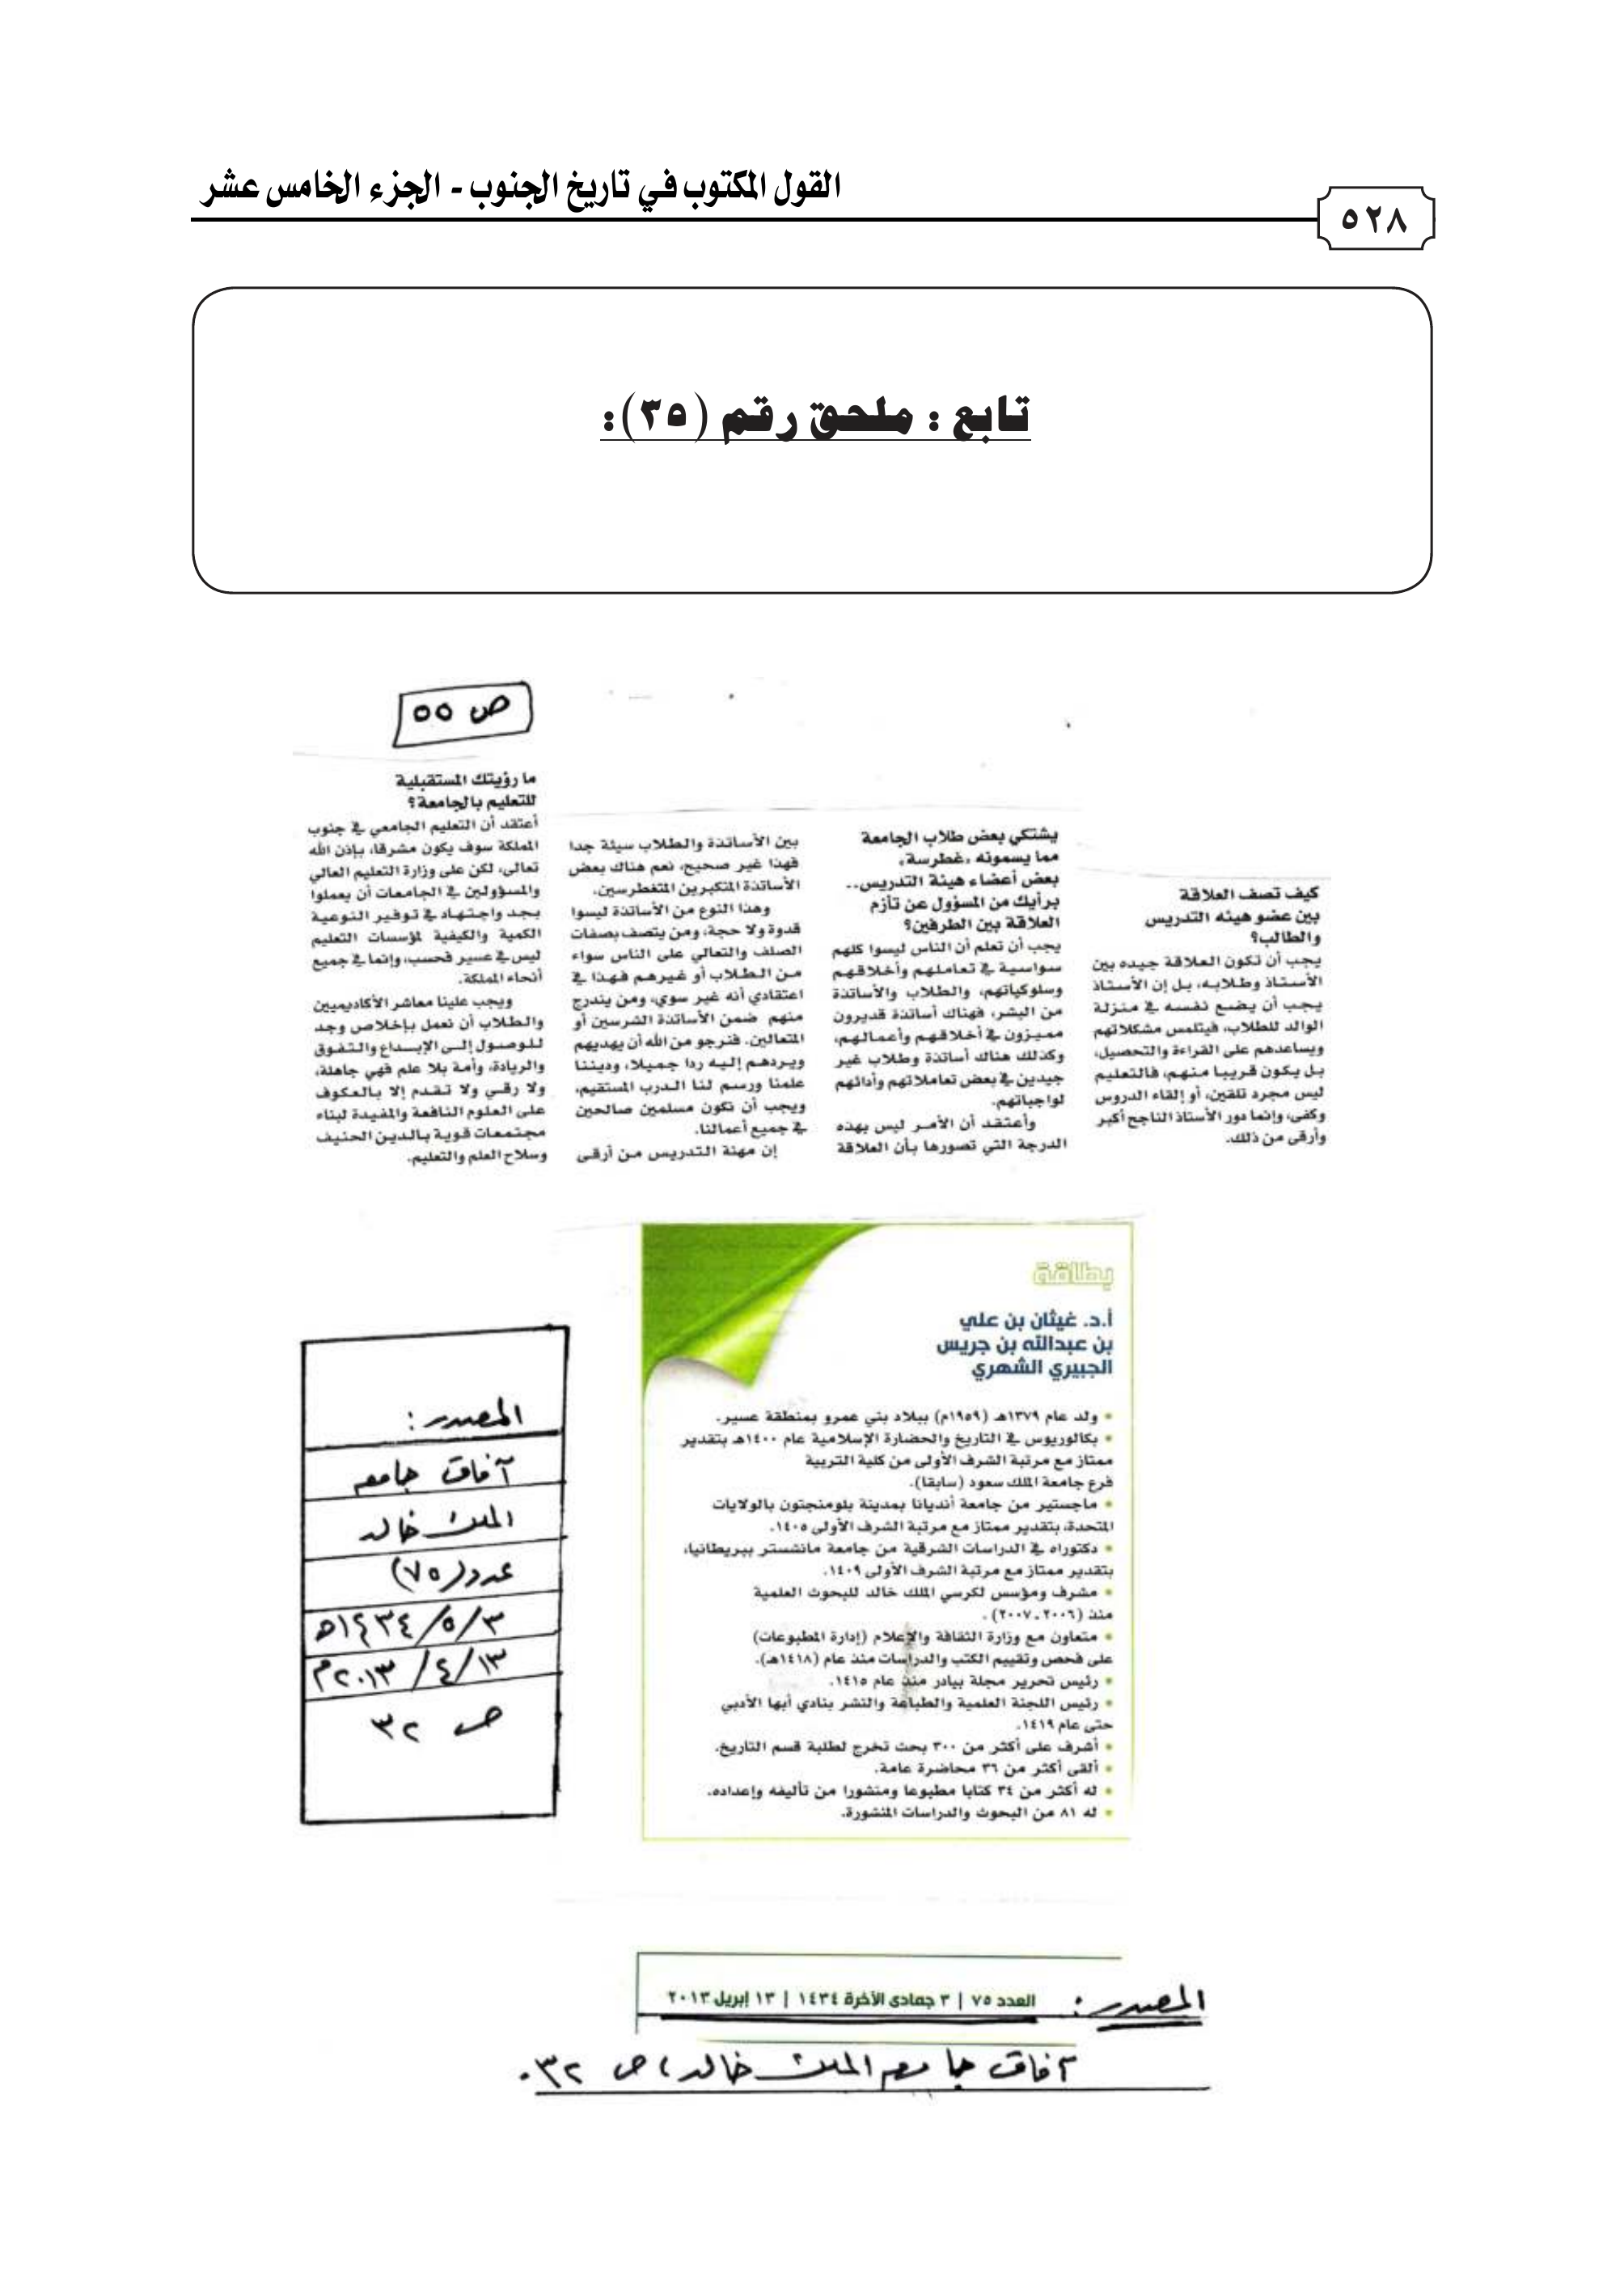 القول المكتوب في تاريخ الجنوب - الجزء الخامس عشر
٥٢٨
تابع : ملحق رقم (٣٥):
ص ٥٥
كيف تصف العلاقة
بين عضو هيئه التدريس
والطالب؟
يجب أن تكون العلاقة جيده بين
الأستاذ وطلابه، بل إن الأستاذ
يجب أن يضع نفسه في منزلة
الوالد للطلاب، فيتلمس مشكلاتهم
ويساعدهم على القراءة والتحصيل،
بل يكون قريبا منهم، فالتعليم
ليس مجرد تلقين، أو إلقاء الدروس
وكفى، وإنما دور الأستاذ الناجح أكبر
وأرقى من ذلك.
يشتكي بعض طلاب الجامعة
مما يسمونه «غطرسة»
بعض أعضاء هيئة التدريس..
برأيك من المسؤول عن تأزم
العلاقة بين الطرفين؟
يجب أن تعلم أن الناس ليسوا كلهم
سواسية في تعاملهم وأخلاقهم
وسلوكياتهم، والطلاب والأساتذة
من البشر، فهناك أساتذة قديرون
مميزون في أخلاقهم وأعمالهم،
وكذلك هناك أساتذة وطلاب غير
جيدين في بعض تعاملاتهم وأدائهم
لواجباتهم.
وأعتقد أن الأمر ليس بهذه
الدرجة التي تصورها بأن العلاقة
بين الأساتذة والطلاب سيئة جدا
فهذا غير صحيح، نعم هناك بعض
الأساتذة المتكبرين المتغطرسين.
وهذا النوع من الأساتذة ليسوا
قدوة ولا حجة، ومن يتصف بصفات
الصلف والتعالي على الناس سواء
من الطلاب أو غيرهم فهذا في
اعتقادي أنه غير سوي، ومن يندرج
منهم ضمن الأساتذة الشرسين أو
المتعالين. فنرجو من الله أن يهديهم
ويردهم إليه ردا جميلا، وديننا
علمنا ورسم لنا الدرب المستقيم،
ويجب أن نكون مسلمين صالحين
في جميع أعمالنا.
إن مهنة التدريس من أرقى
ما رؤيتك المستقبلية
للتعليم بالجامعة؟
أعتقد أن التعليم الجامعي في جنوب
المملكة سوف يكون مشرقا، بإذن الله
تعالى، لكن على وزارة التعليم العالي
والمسؤولين في الجامعات أن يعملوا
بجد واجتهاد في توفير النوعية
الكمية والكيفية لمؤسسات التعليم
ليس في عسير فحسب، وإنما في جميع
أنحاء المملكة.
ويجب علينا معاشر الأكاديميين
والطلاب أن نعمل بإخلاص وجد
للوصول إلى الإبداع والتفوق
والريادة، وأمة بلا علم فهي جاهلة،
ولا رقي ولا تقدم إلا بالعكوف
على العلوم النافعة والمفيدة لبناء
مجتمعات قوية بالدين الحنيف
وسلاح العلم والتعليم.
بطاقة
أ.د. غيثان بن علي
بن عبدالله بن جريس
الجبيري الشهري
• ولد عام ١٣٧٩هـ (١٩٥٩م) ببلاد بني عمرو بمنطقة عسير.
• بكالوريوس في التاريخ والحضارة الإسلامية عام ١٤٠٠هـ بتقدير
ممتاز مع مرتبة الشرف الأولى من كلية التربية
فرع جامعة الملك سعود (سابقا).
• ماجستير من جامعة أنديانا بمدينة بلومنجتون بالولايات
المتحدة، بتقدير ممتاز مع مرتبة الشرف الأولى ١٤٠٥.
• دكتوراه في الدراسات الشرقية من جامعة مانشستر ببريطانيا،
بتقدير ممتاز مع مرتبة الشرف الأولى ١٤٠٩.
• مشرف ومؤسس لكرسي الملك خالد للبحوث العلمية
منذ (٢٠٠٦ـ٢٠٠٧) .
• متعاون مع وزارة الثقافة والإعلام (إدارة المطبوعات)
على فحص وتقييم الكتب والدراسات منذ عام (١٤١٨هـ).
• رئيس تحرير مجلة بيادر منذ عام ١٤١٥.
• رئيس اللجنة العلمية والطباعة والنشر بنادي أبها الأدبي
حتى عام ١٤١٩.
• أشرف على أكثر من ٣٠٠ بحث تخرج لطلبة قسم التاريخ.
• ألقى أكثر من ٣٦ محاضرة عامة.
• له أكثر من ٣٤ كتابا مطبوعا ومنشورا من تأليفه وإعداده.
• له ٨١ من البحوث والدراسات المنشورة.
المصدر:
آفاق جامعة
الملك خالد
عدد (٧٥)
٣/٥/١٤٣٤هـ
١٣/٤/٢٠١٣م
ص ٣٢
المصدر: العدد ٧٥ | ٣ جمادى الآخرة ١٤٣٤ | ١٣ إبريل ٢٠١٣
آفاق جامعة الملك خالد، ص ٣٢.